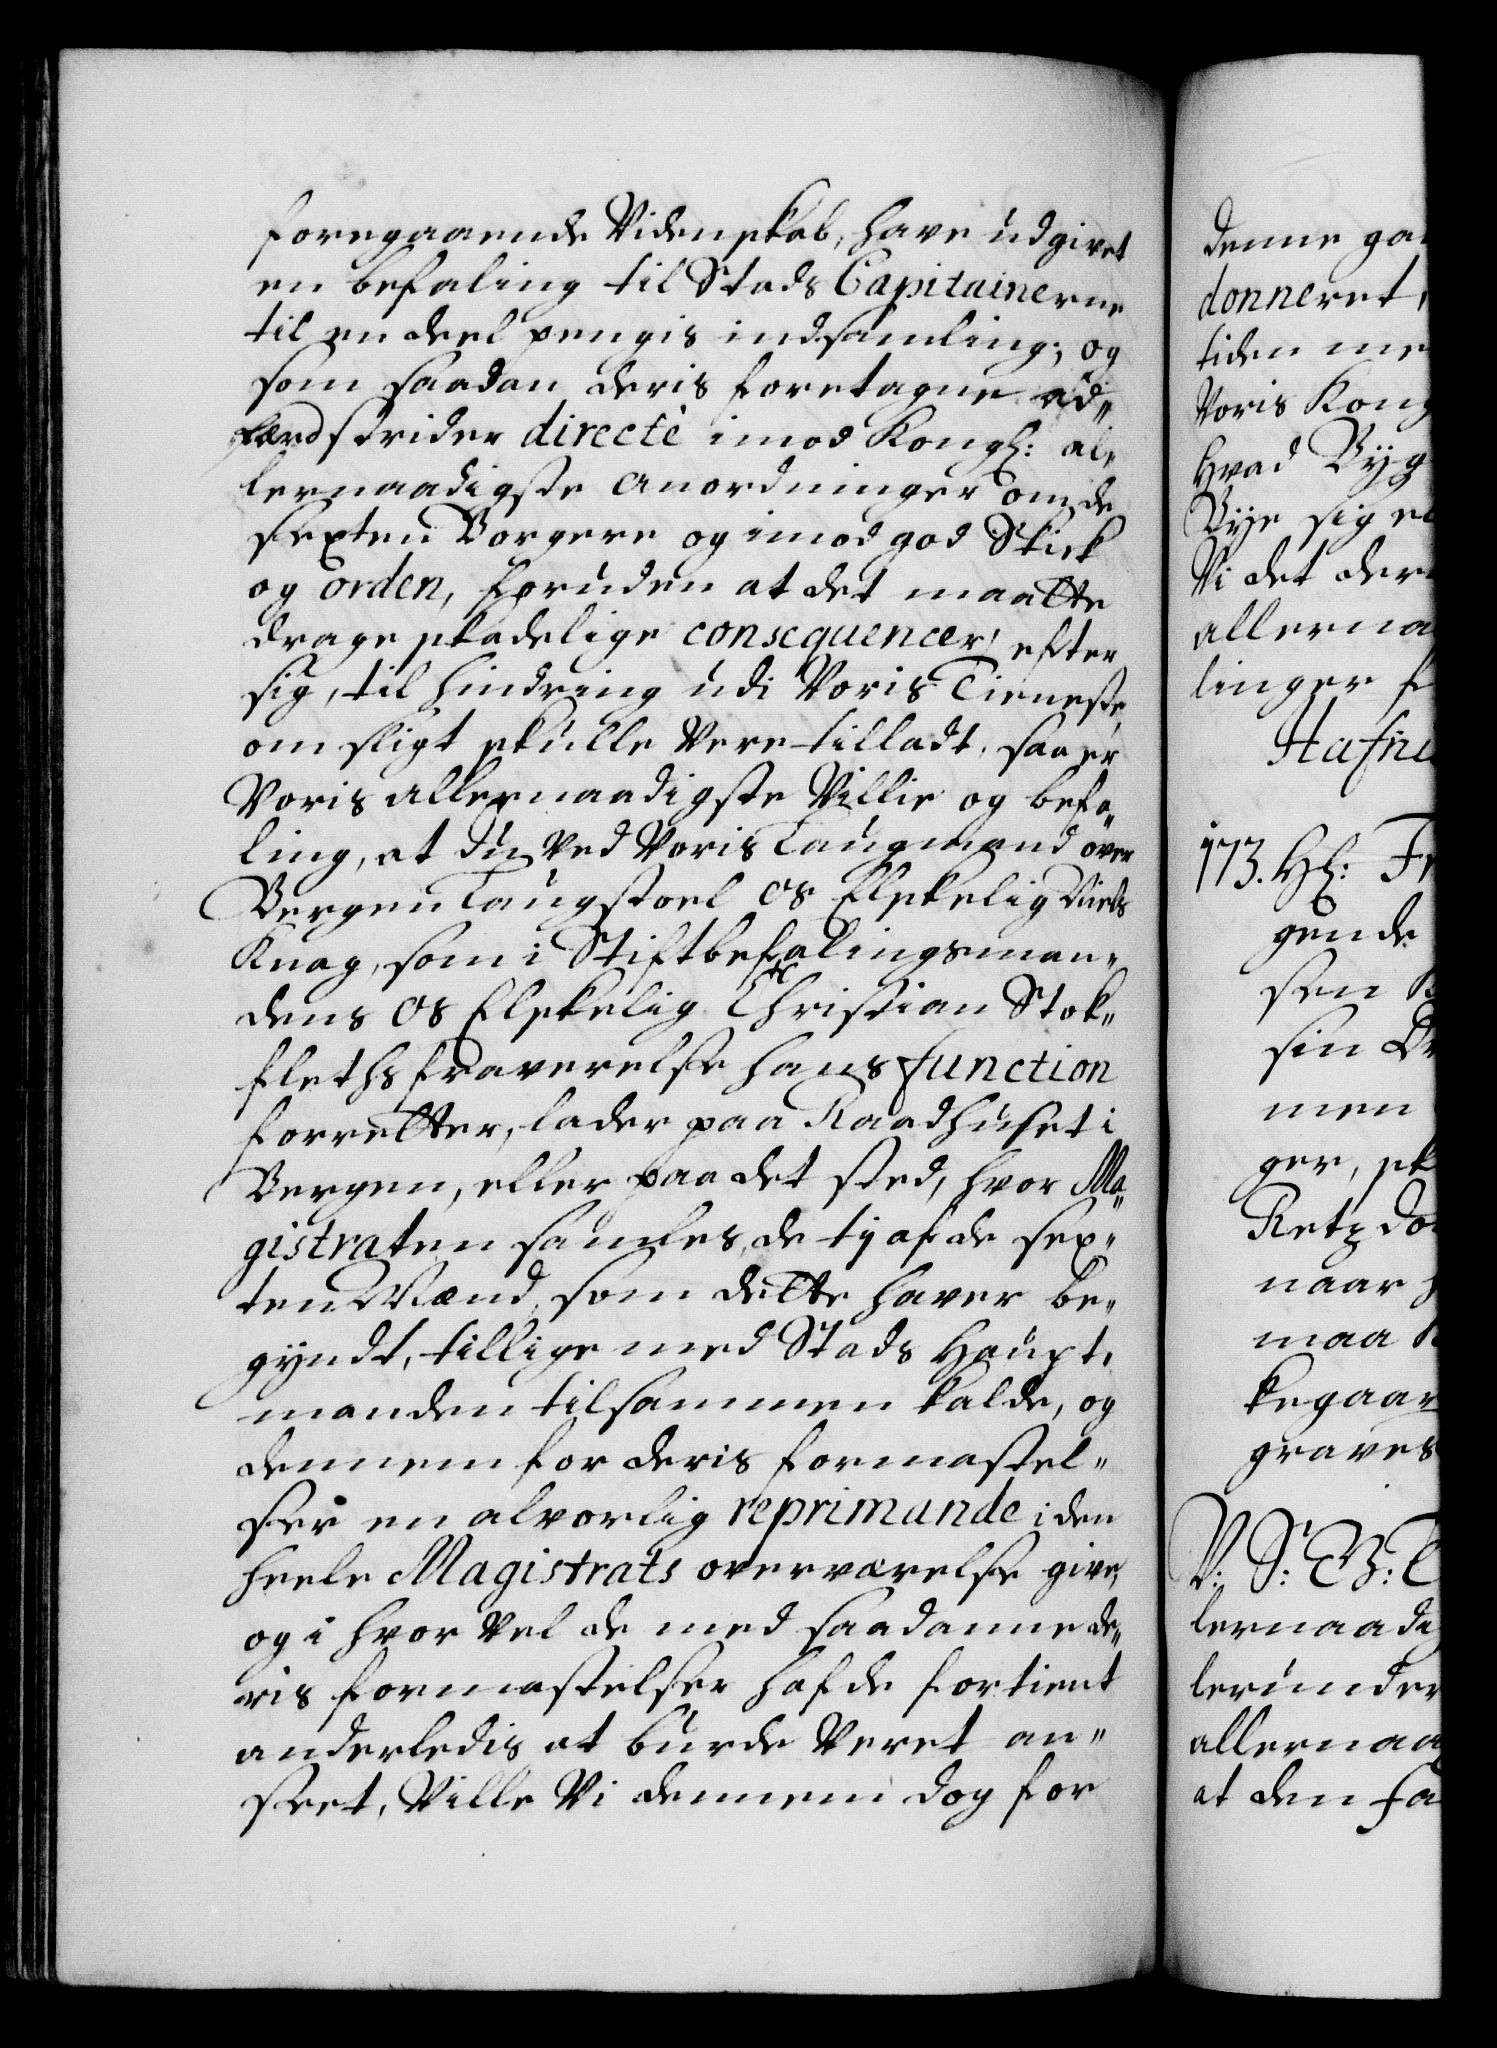 foregaaende Videnskab, have udgivet
en befaling til Stads Capitainerne
til en deel pengis indsamling; og
som saadan deris foretagne ad„
færd strider directè imod Kongl: al„
lernaadigste Anordninger om de
sexten Borgere og imod god Skick
og orden, foruden at det maatte
drage skadelige consequencer efter
sig, til hindring udi Voris Tieneste
om sligt skulle Vere tilladt, saa er
Voris allernaadigste Villie og befa„
ling, at du ved Voris Laugmand over
Bergen Laugstoel os Elskelig Niels
Knag, som i Stiftbefalingsman„
dens os Elskelig Christian Stok„
fleths fraverelse hans function
forretter, lader paa Raadhuset i
Bergen, eller paa det sted, hvor Ma„
gistraten samles, de tj af de sex„
ten Mænd, som dette haver be„
gyndt, tillige med Stads Haupt„
manden tilsammen kalde, og
dennem for deris formastel„
ser en alvorlig reprimande i den
heele Magistrats overværelse give,
og i hvor vel de med saadanne de„
ris formastelser hafde fortient
anderledis at burde Veret an„
seet, Ville Vi dennem dog for
denne
donneret,
tiden
Voris Kong
Hvad Byg
Bye sig
Vi det
allerna
linger
Hafni
173. Hl: Fr
gende
sen
sin
men
ger,
Retz
naar
maa
kegaar
graves
V: S: G: T
lernaadig
lerunder
allernaa
at den fa